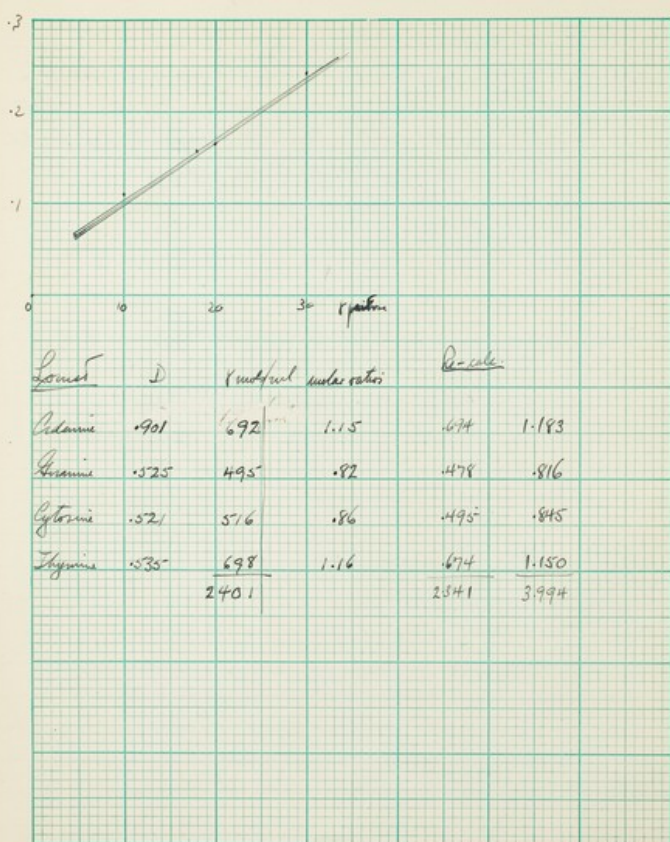 .3
.2
.1
0 10 20 30 γ
Locust D γ mols/ml molar ratios Re-calc.
Adenine .901 692 1.15 .694 1.183
Guanine .525 495 .82 .478 .816
Cytosine .521 516 .86 .495 .845
Thymine .535 698 1.16 .674 1.150
2401 2341 3.994